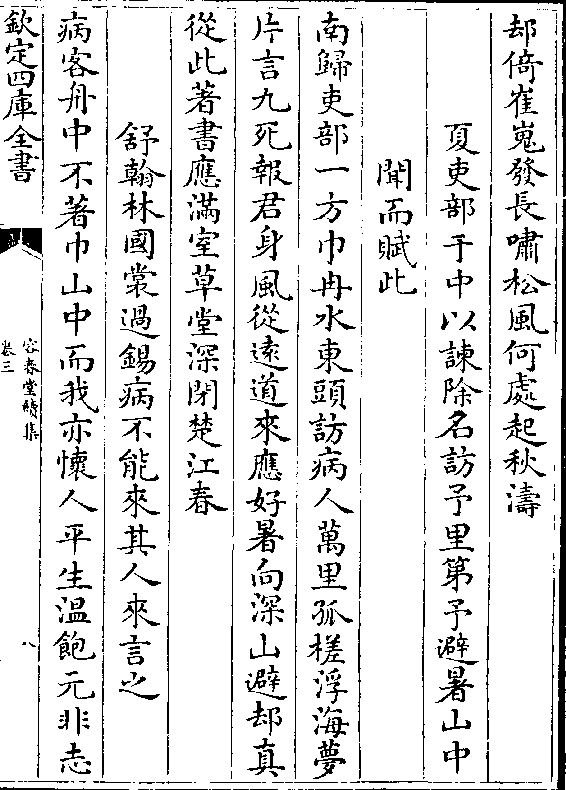 却倚崔嵬發長嘯松風何處起秋濤
夏吏部于中以諫除名訪予里第予避暑山中
聞而賦此
南歸吏部一方巾冉水東頭訪病人萬里孤槎浮海夢
片言九死報君身風從遠道來應好暑向深山避却真
從此著書應滿室草堂深閉楚江春
舒翰林國裳過錫病不能來其人來言之
病客舟中不著巾山中而我亦懷人平生溫飽元非志
欽定四庫全書
容春堂續集
卷三
八